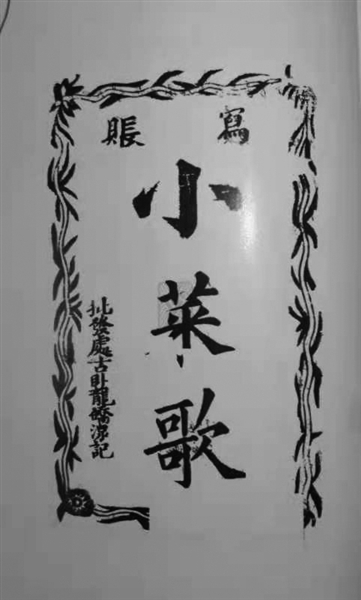 寫賬
小菜歌
批發處古卧龍橋源記